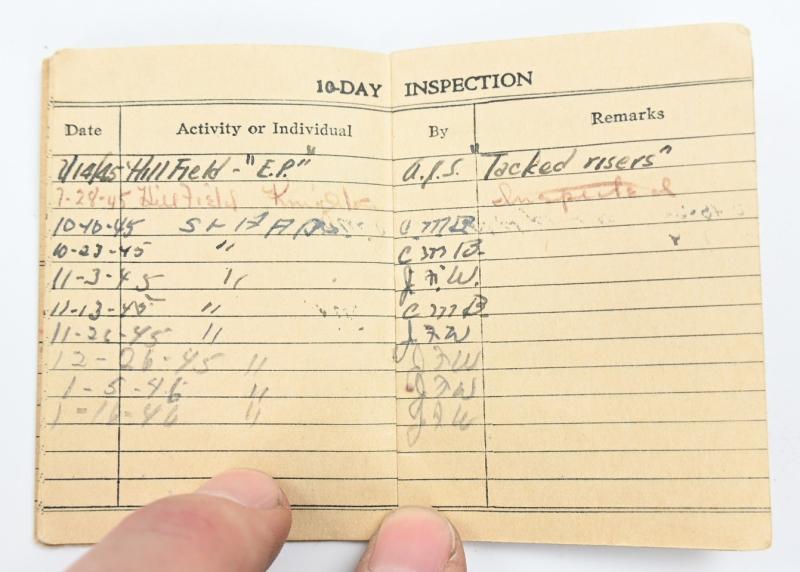 10-DAY INSPECTION
Date Activity or Individual By Remarks
7/14/45 Hill Field - "E.P." a.J.S. "Tacked risers"
7-28-45 Hill Field Knight Inspected
10-10-45 CMB
10-23-45 " CMB
11-3-45 " J.F.W.
11-13-45 " CMB
11-26-45 " JFW
12-26-45 " JFW
1-5-46 " JFW
1-16-46 " JFW